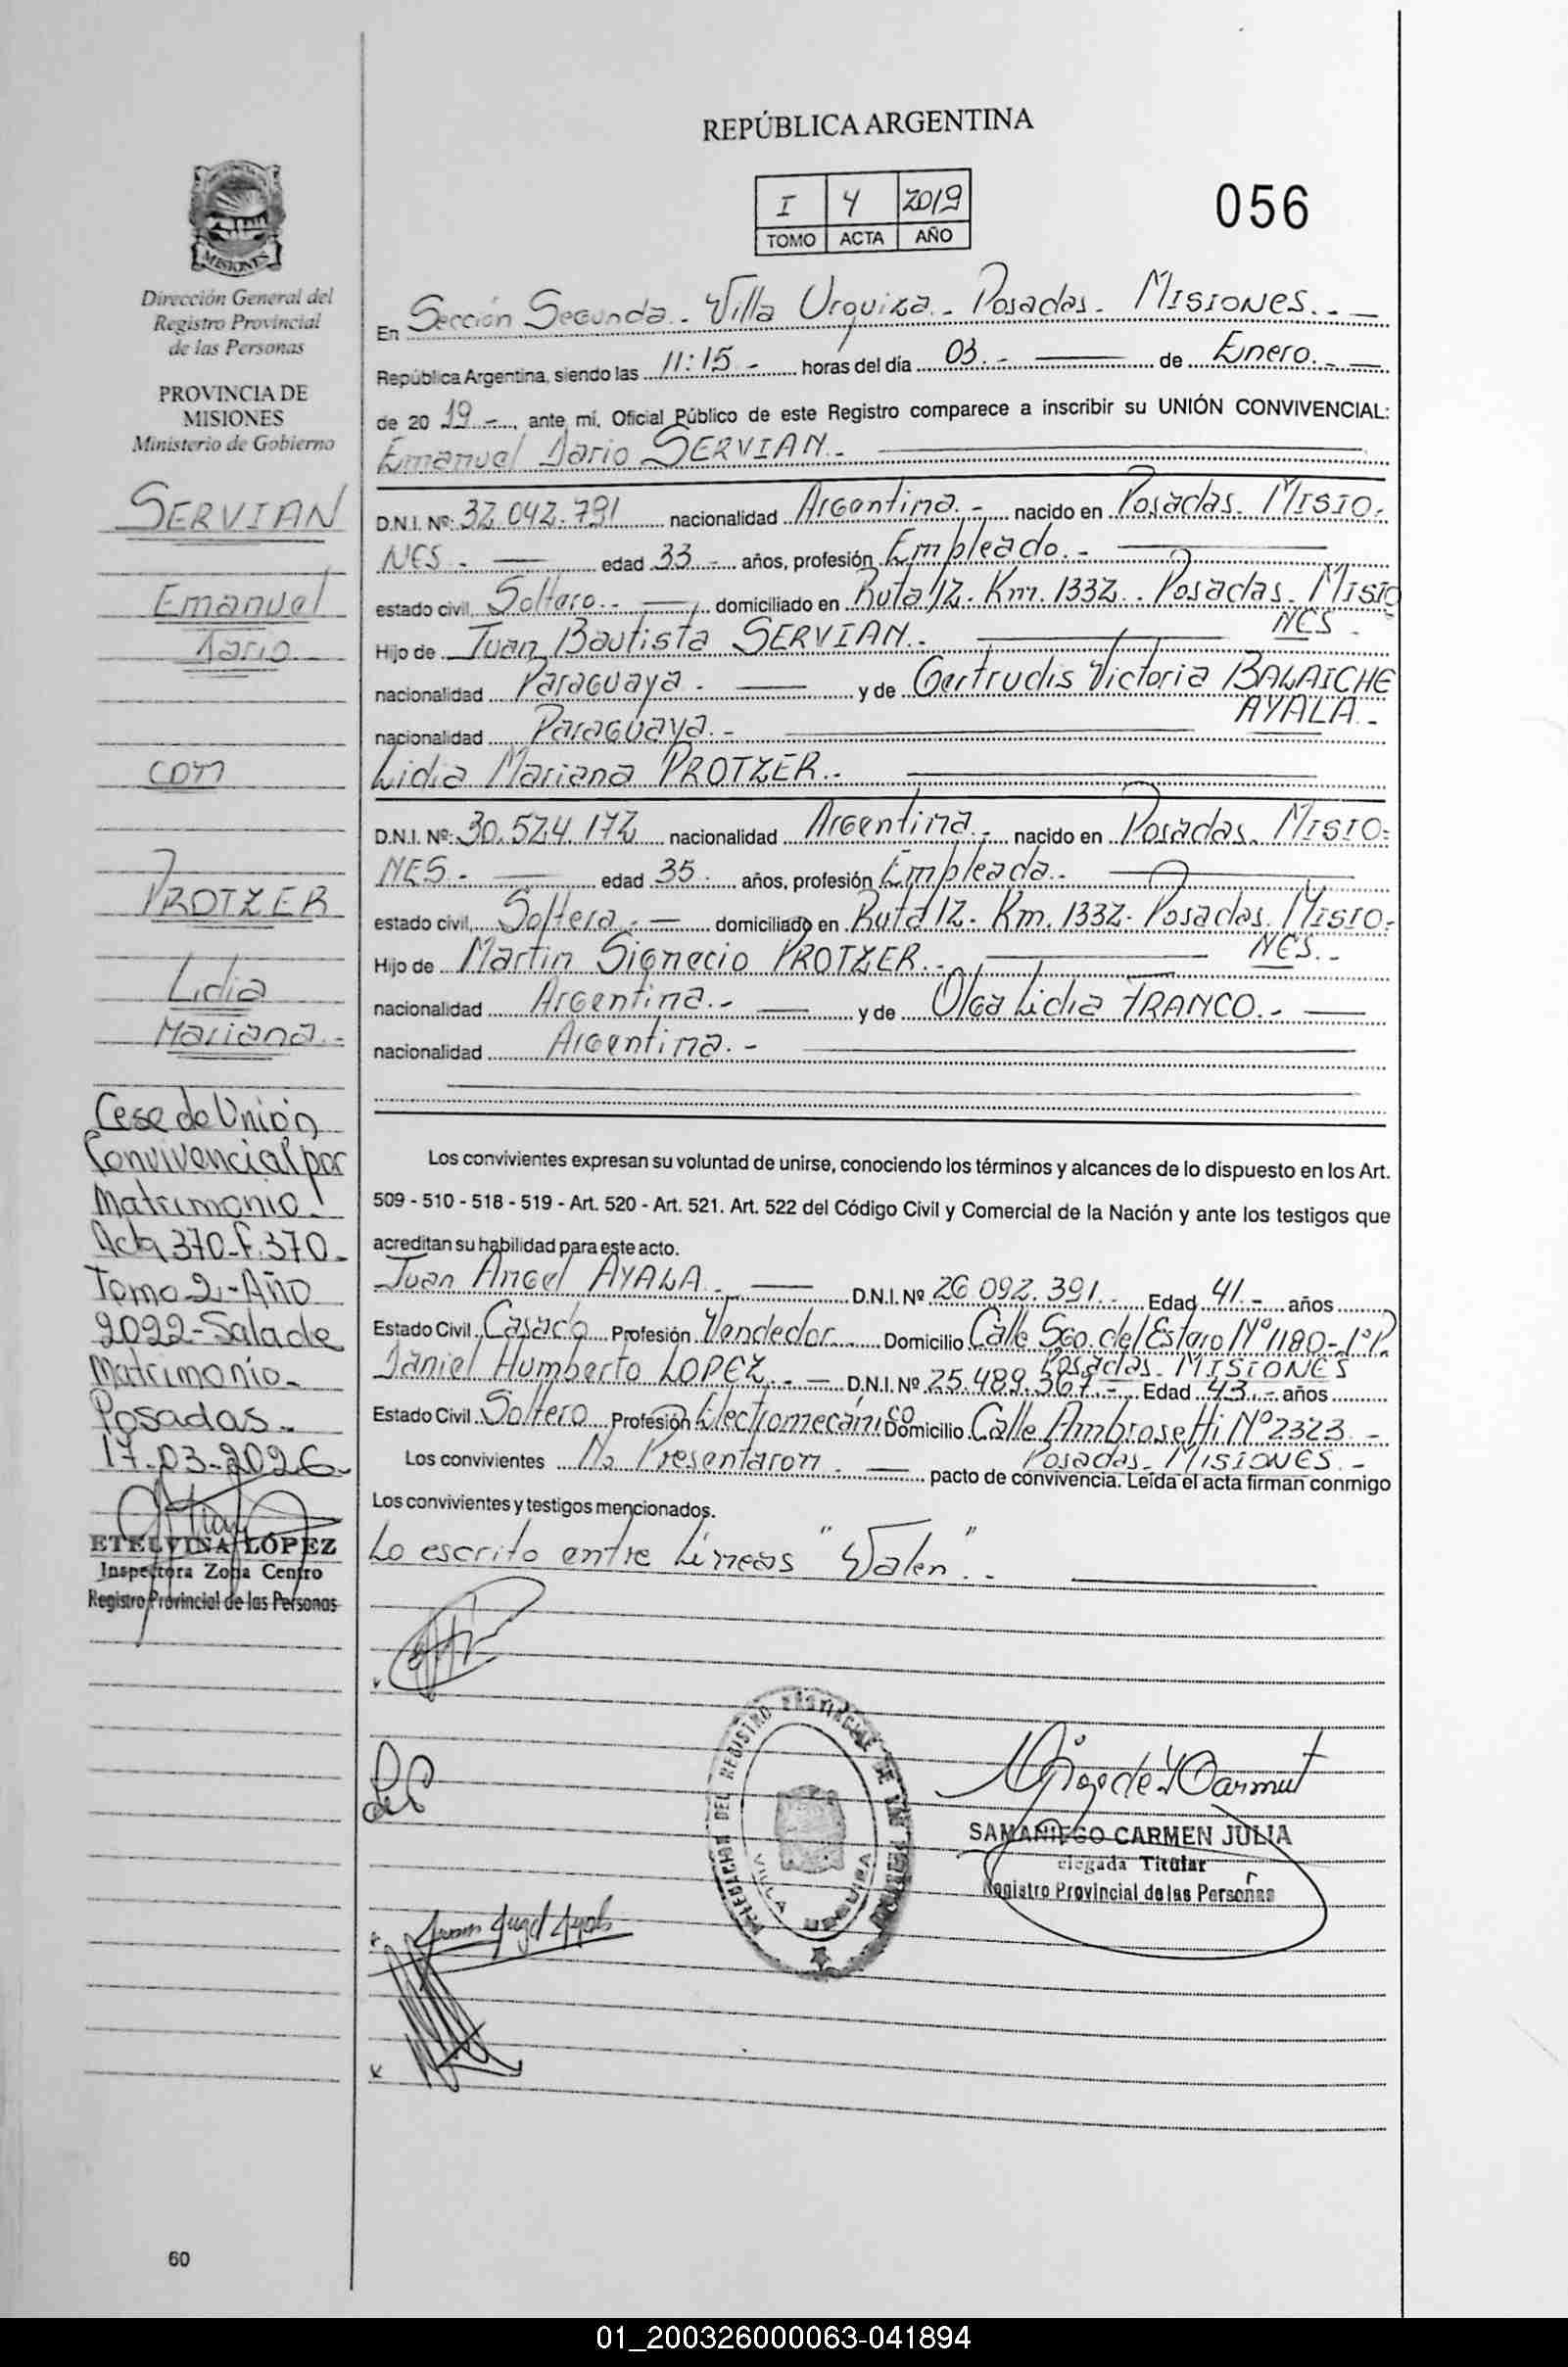 REPÚBLICA ARGENTINA
I 4 2019
TOMO ACTA AÑO
056
MISIONES
Dirección General del
Registro Provincial
de las Personas
PROVINCIA DE
MISIONES
Ministerio de Gobierno
SERVIAN
Emanuel
Dario
con
PROTZER
Lidia
Mariana.-
Cese de Unión
Convivencial por
Matrimonio.
Acta 370-F.370-
Tomo 2.-Año
2022-Sala de
Matrimonio-
Posadas-
17-03-2026-
ETELVINA LÓPEZ
Inspectora Zona Centro
Registro Provincial de las Personas
En Sección Segunda.- Villa Urquiza.- Posadas.- MISIONES.-
República Argentina, siendo las 11:15.- horas del día 03.- de Enero.-
de 20 19.-, ante mí, Oficial Público de este Registro comparece a inscribir su UNIÓN CONVIVENCIAL:
Emanuel Dario SERVIAN.-
D.N.I. Nº: 32.042.791 nacionalidad Argentina.- nacido en Posadas. MISIO-
NES.- edad 33.- años, profesión Empleado.-
estado civil, Soltero.- domiciliado en Ruta 12. Km. 1332.- Posadas. MISIO
NES.-
Hijo de Juan Bautista SERVIAN.-
nacionalidad Paraguaya.- y de Gertrudis Victoria BALAICHE
AYALA.-
nacionalidad Paraguaya.-
Lidia Mariana PROTZER.-
D.N.I. Nº: 30.524.172 nacionalidad Argentina.- nacido en Posadas. MISIO-
NES.- edad 35 años, profesión Empleada.-
estado civil, Soltera.- domiciliado en Ruta 12.- Km. 1332- Posadas. MISIO-
NES.-
Hijo de Martin Signecio PROTZER.-
nacionalidad Argentina.- y de Olga Lidia FRANCO.-
nacionalidad Argentina.-
Los convivientes expresan su voluntad de unirse, conociendo los términos y alcances de lo dispuesto en los Art.
509 - 510 - 518 - 519 - Art. 520 - Art. 521. Art. 522 del Código Civil y Comercial de la Nación y ante los testigos que
acreditan su habilidad para este acto.
Juan Angel AYALA.- D.N.I. Nº 26.092.391.- Edad 41.- años
Estado Civil Casado Profesión Vendedor Domicilio Calle Sgo. del Estero Nº 1180-1ºP.
Posadas. MISIONES
Daniel Humberto LOPEZ.- D.N.I. Nº 25.489.367.- Edad 43.- años
Estado Civil Soltero Profesión Electromecánico Domicilio Calle Ambrosetti Nº 2323.-
Posadas. MISIONES.-
Los convivientes No Presentaron.- pacto de convivencia. Leída el acta firman conmigo
Los convivientes y testigos mencionados.
Lo escrito entre Líneas "Valen".-
Juan Angel Ayala
DELEGACION DEL REGISTRO PROVINCIAL DE LAS PERSONAS
VILLA URQUIZA
SAMANIEGO CARMEN JULIA
elegada Titular
Registro Provincial de las Personas
60
01_200326000063-041894